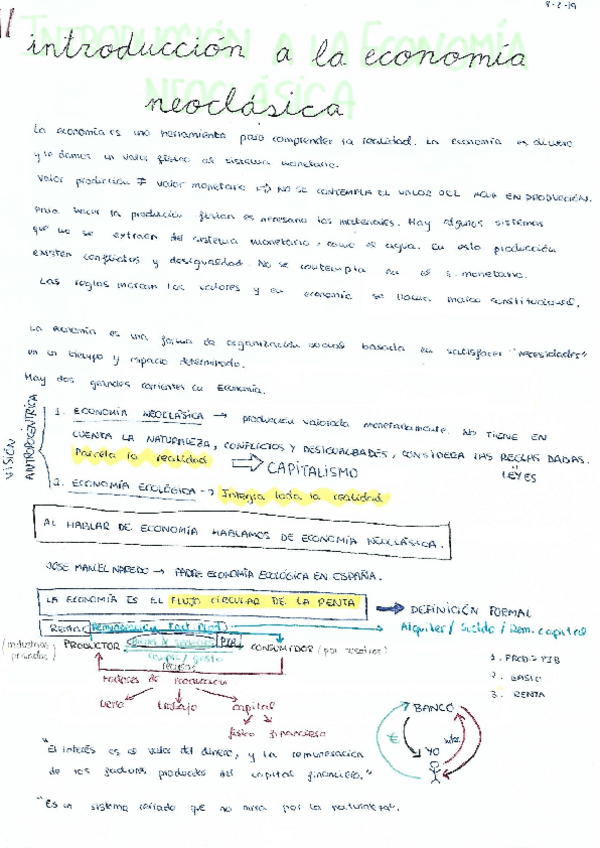 8-2-19
introducción a la economía
neoclásica
La economía es una herramienta para comprender la realidad. La economía es dinero
y le damos un valor físico al sistema monetario.
Valor producción ≠ valor monetario => NO SE CONTEMPLA EL VALOR DEL AGUA EN PRODUCCIÓN.
Para hacer la producción es necesario los materiales. Hay algunos sistemas
que no se extraen del sistema monetario, como el agua. En esta producción
existen conflictos y desigualdad. No se contempla en el s. monetario.
Las reglas marcan los valores y en economía se llama marco institucional.
La economía es una forma de organización social basada en satisfacer "necesidades"
en un tiempo y espacio determinado.
Hay dos grandes corrientes en Economía.
VISIÓN ANTROPOCÉNTRICA
1. ECONOMÍA NEOCLÁSICA → producción valorada monetariamente. NO TIENE EN
CUENTA LA NATURALEZA, CONFLICTOS Y DESIGUALDADES, CONSIDERA LAS REGLAS DADAS.
Parcela la realidad ⇒ CAPITALISMO
LEYES
2. ECONOMÍA ECOLÓGICA → Integra toda la realidad
AL HABLAR DE ECONOMÍA HABLAMOS DE ECONOMÍA NEOCLÁSICA.
JOSE MANUEL NAREDO → PADRE ECONOMÍA ECOLÓGICA EN ESPAÑA.
LA ECONOMÍA ES EL FLUJO CIRCULAR DE LA RENTA → DEFINICIÓN FORMAL
Rentas (Remuneración Fact. Prod.) Alquiler / Sueldo / Rem. capital
(industrias privadas) PRODUCTOR PIB CONSUMIDOR (por nosotros)
gasto
factores de producción
tierra trabajo capital
físico financiero
1. PROD = PIB
2. GASTO
3. RENTA
BANCO
€
YO
"El interés es el valor del dinero, y la remuneración
de los factores productos del capital financiero."
"Es un sistema cerrado que no mira por la naturaleza".